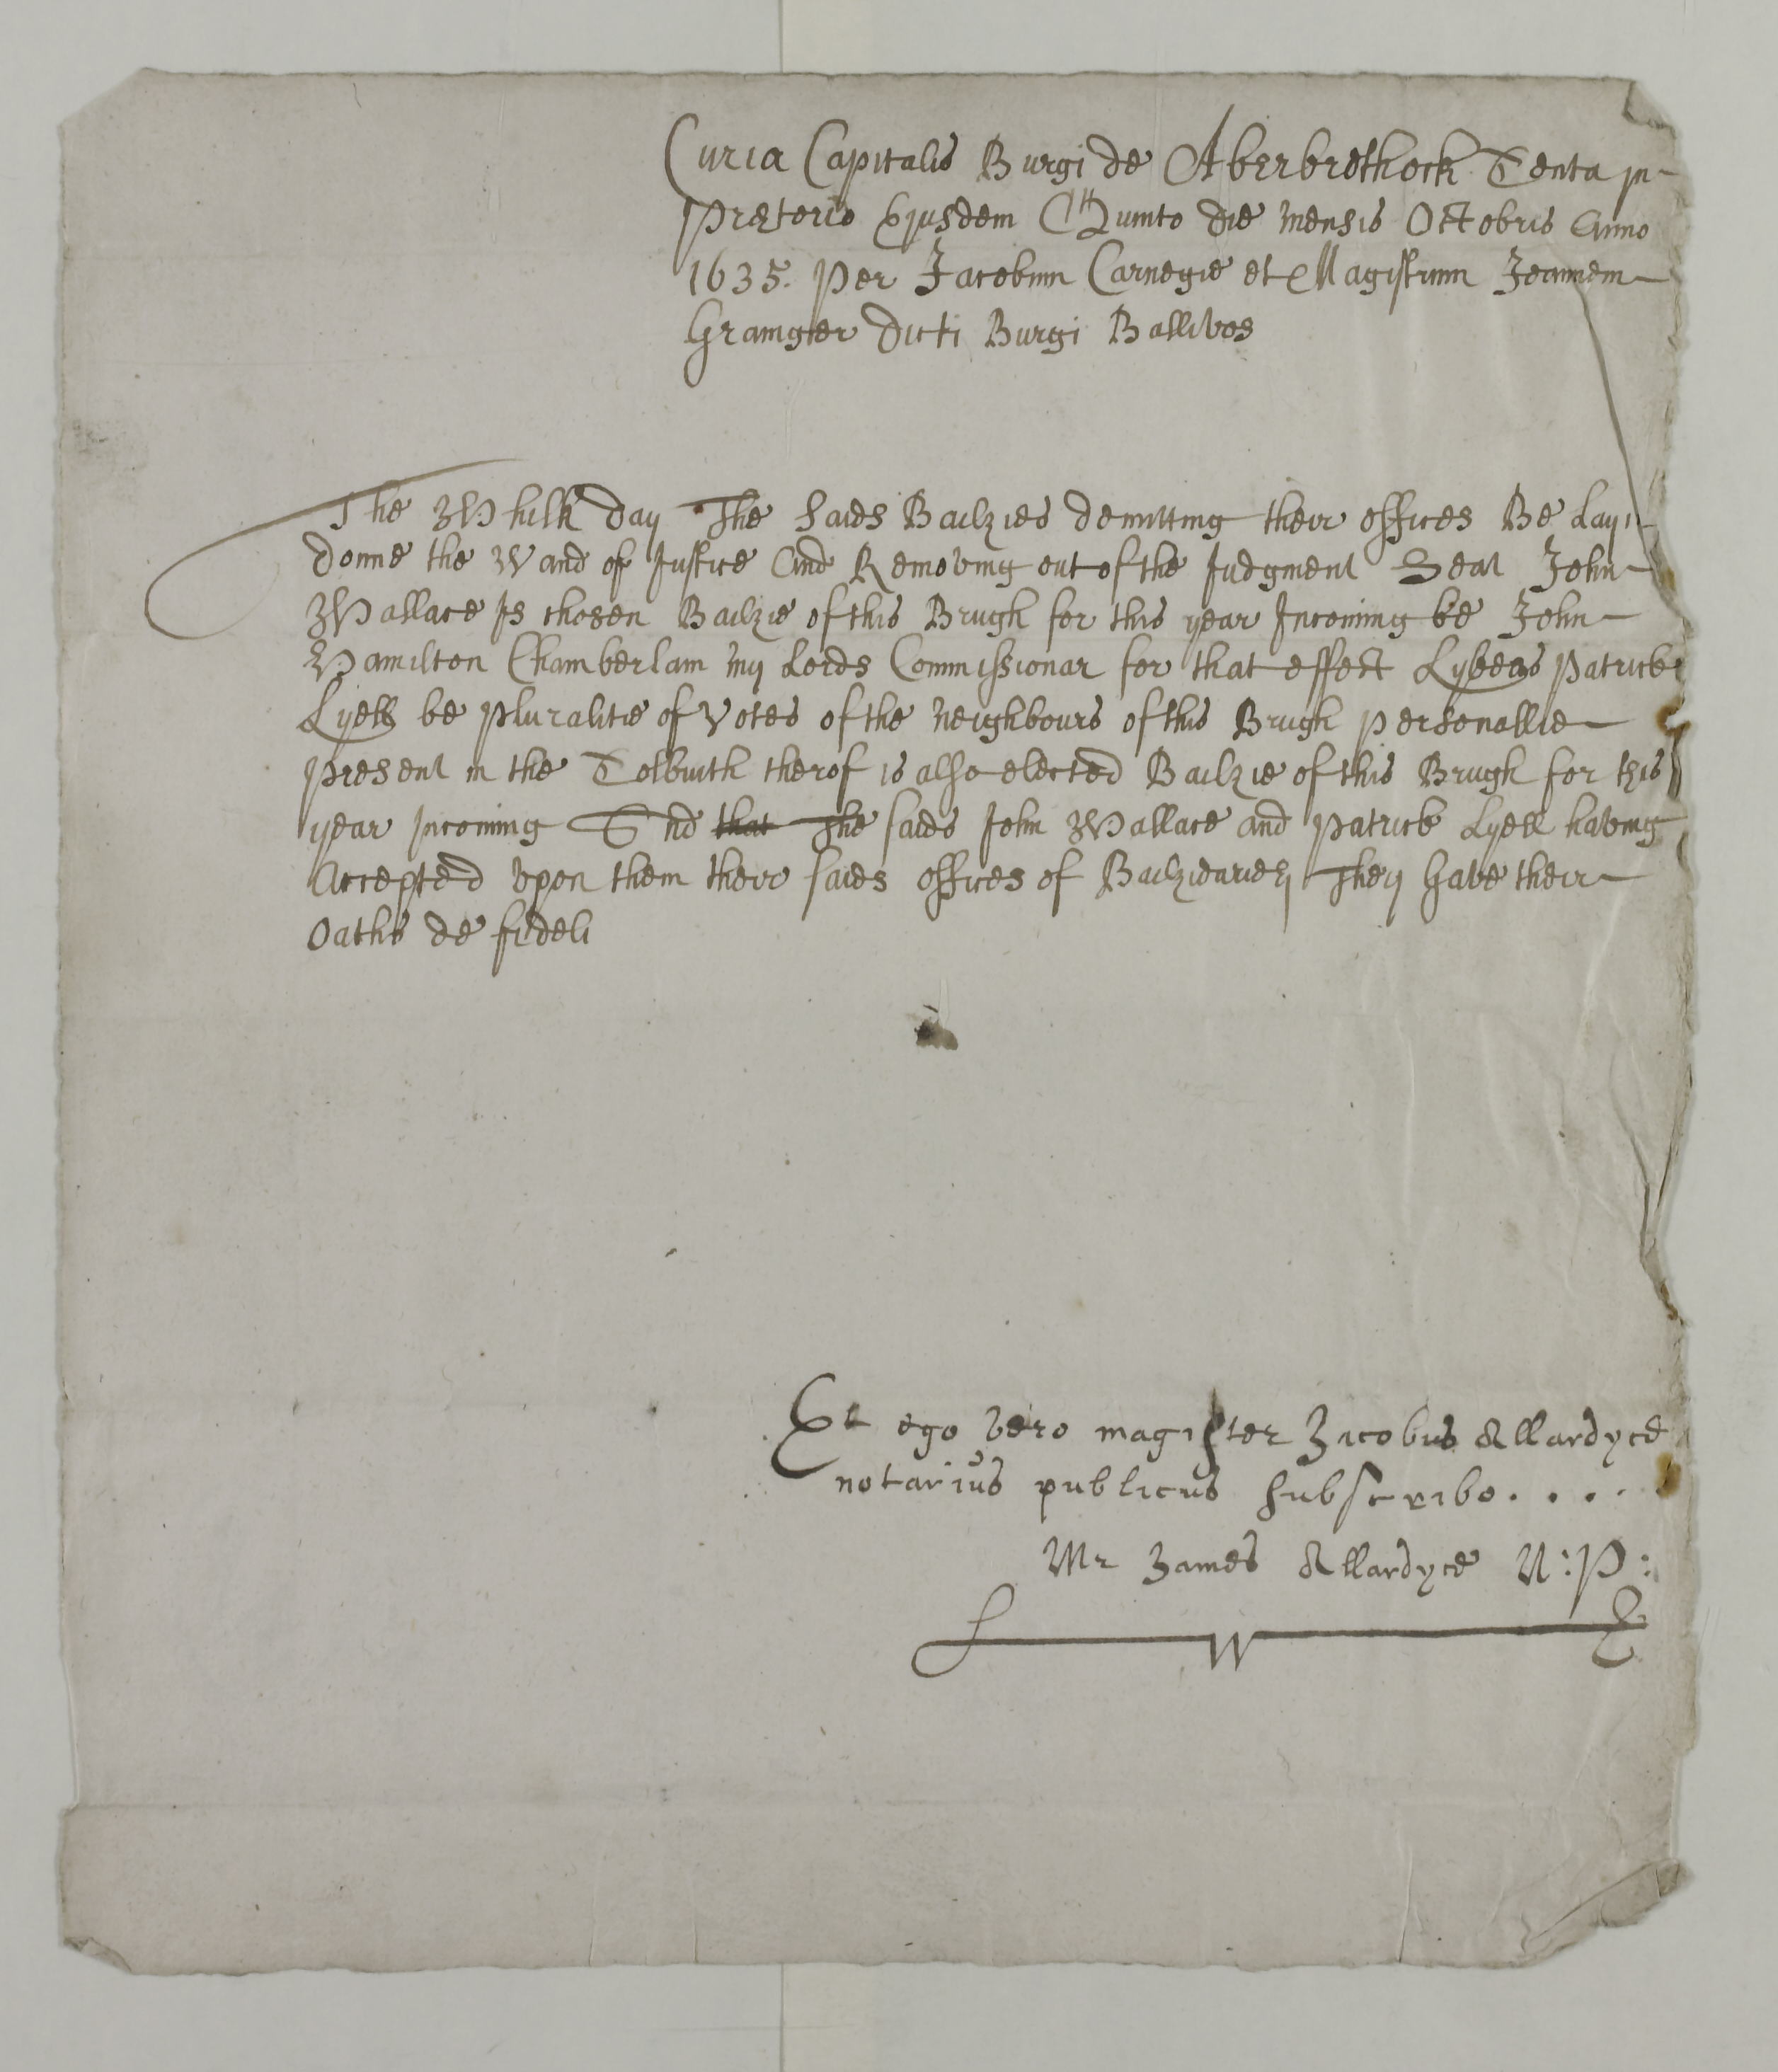 Curia Capitalis Burgi de Aberbrothock Tenta in
Pretorio Ejusdem Quinto die mensis Octobris Anno
1635. Per Jacobum Carnegie et Magistrum Joannem
Grainger dicti Burgi Ballivos
The Whilk day The saids Bailzies demitting their offices Be Layi
donne the Wand of Justice And Removing out of the Judgment Seat John
Wallace Is chosen Bailzie of this Brugh for this year Incoming be John
Hamilton Chamberlain my Lords Commissionar for that effect Patrick
Lyell be pluralitie of votes of the neighbours of this Brugh personallie
present in the Tolbuith therof is also elected Bailzie of this Brugh for this
year Incoming And that The saids John Wallace and Patrick Lyell having
Accepted upon them their saids offices of Bailziearies They Gave their
Oaths de fideli
Et ego vero magister Jacobus Allardyce
notarius publicus subscribo....
Mr James Allardyce N:P: